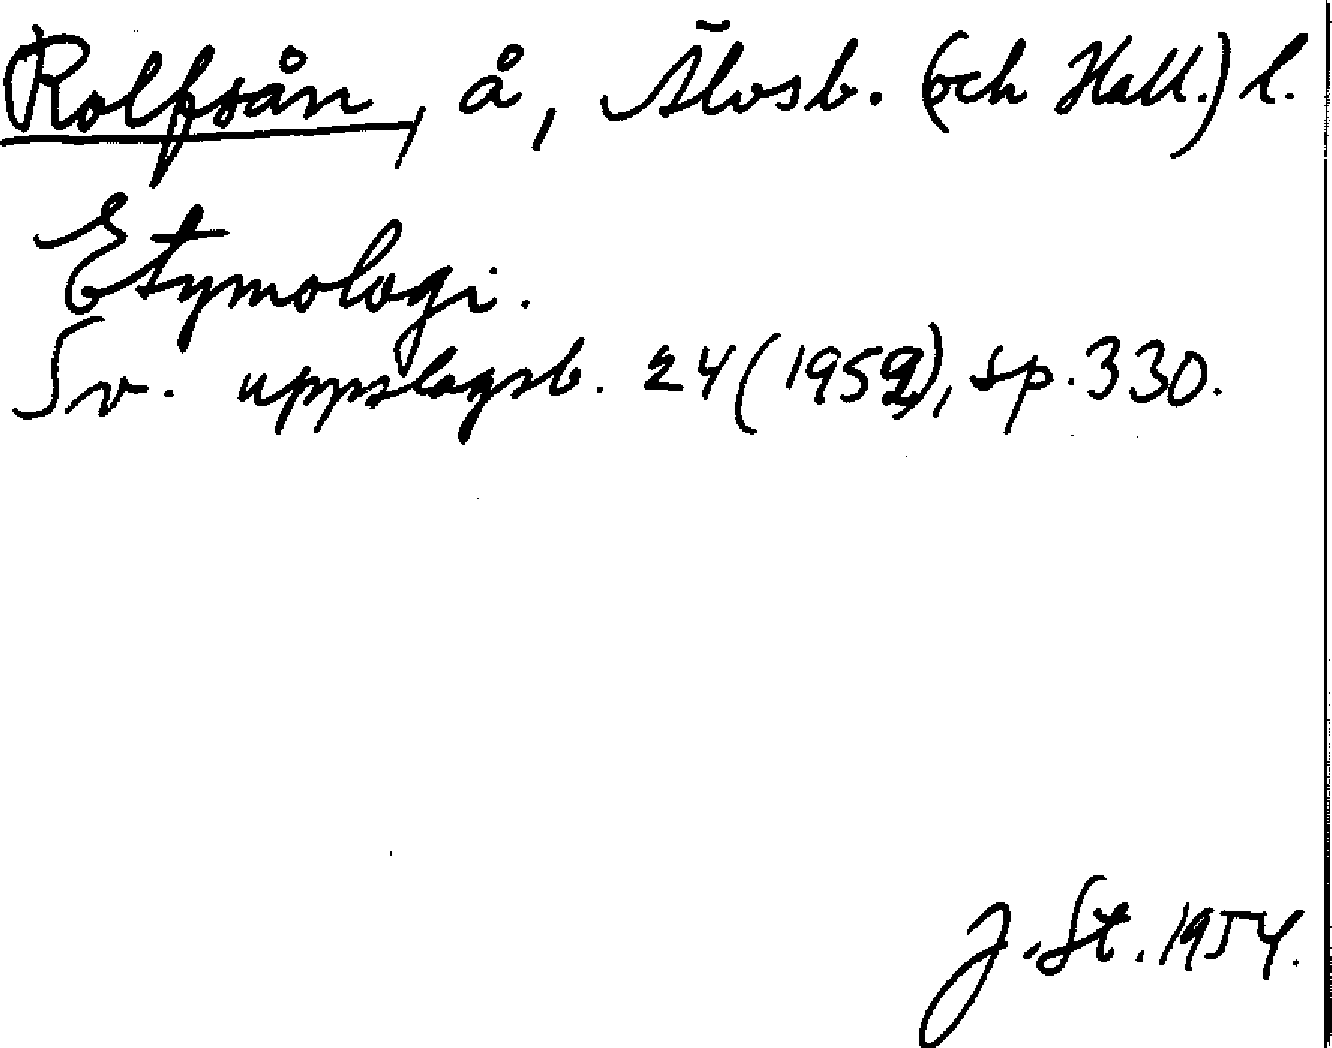 Rolfsån, å, Älvsb. (och Hall.) l.
Etymologi.
Sv. uppslagsb. 24 (1952), sp. 330.
J. St. 1954.